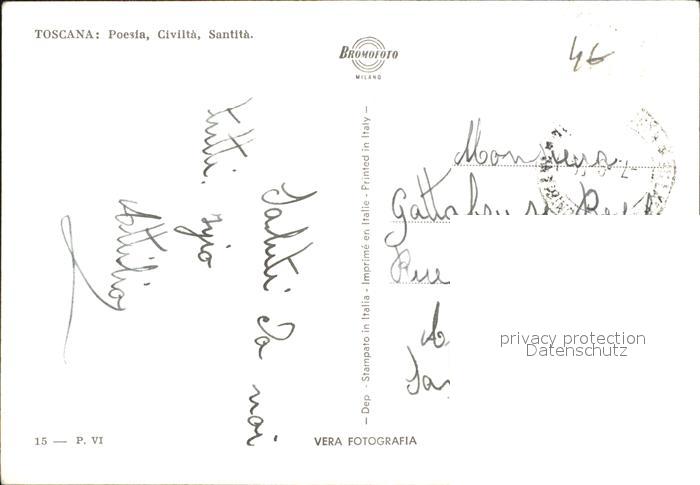 TOSCANA: Poesia, Civiltà, Santità.
BROMOFOTO
MILANO
46
Saluti da noi
tutti. zio
Attilio
— Dep. - Stampato in Italia - Imprimé en Italie - Printed in Italy —
Monsieur
Rue
privacy protection
Datenschutz
15 — P. VI
VERA FOTOGRAFIA